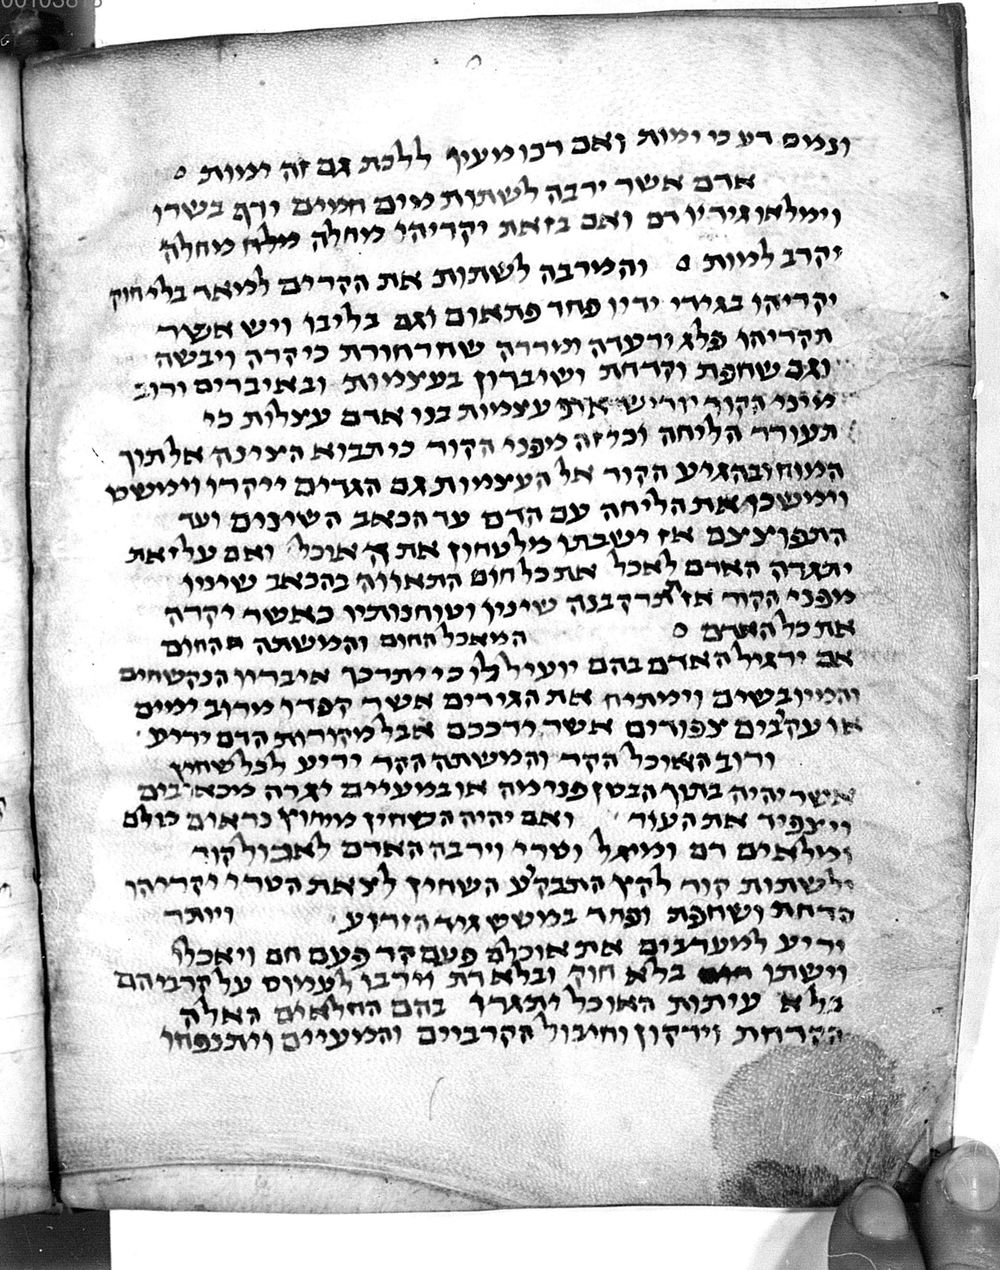 00103818
ונמס רע כי ימות ואם רכו מעיך ללכת גם זה ימות
אדם אשר ירבה לשתות מים חמים ירף בשרו
וימלאו גידיו דם ואם בזאת יקריהו מחלה מלח מחלה
יקרב למות והמרבה לשתות את הקרים למאד בלי חוק
יקריהו בגידי ידיו פחד פתאום וגם בליבו ויש אשר
תקריהו פלג ורעדה ומררה שחרחורת כי קרה ויבשה
וגם שחפת וקדחת ושיברון בעצמות ובאיברים ורוב
מיני הקור יוריש את עצמות בני אדם עצלות כי
תעורר הליחה וכי זה מפני הקור כי תבוא הצינה אל תוך
המוח ובהגיע הקור אל העצמות גם הגדים ייקרו וימשט
וימשכו את הליחה עם הדם עד הכאב השינים ועד
התפוצצם אז ישבתו מלטחון את האוכל ואם על זאת
יתגרה האדם לאכל את כל חום התאווה בהכאב שיניו
מפני הקור אז תרקבנה שיניו וטוחנותיו כאשר יקרה
את כל האדם המאכל החום והמשתה החום
אם ירגיל האדם בהם יועיל לו כי יתרכך איבריו הנקשחים
והמיובשים וימתיח את הגידים אשר קפדו מרוב ימים
או עקבים צפורים אשר ירככם אבל מקורות הדם ידיע
ורוב האוכל הקר והמשתה הקר יריע לכל שחין
אשר יהיה בתוך הבטן פנימה או במעיים יגרה מכאובים
ויצפיד את העור ואם יהיה השחין מחוץ נראום כולם
ומלאים דם ומוגל וטרי וירבה האדם לאכול קור
ולשתות קור לקץ התבקע השחין לצאת הטרי יקריהו
הדחת ושחפת ופחד במשט גיד הזרוע ויותר
יריע למערבים את אוכלם פעם קר פעם חם ויאכלו
וישתו בלא חוק ובלא דת וירבו לעמוס על קרביהם
בלא עיתות האוכל יתגרו בהם החלאים האלה
הקדחת וירקון וחיבול הקרביים והמעיים ויתנפחו